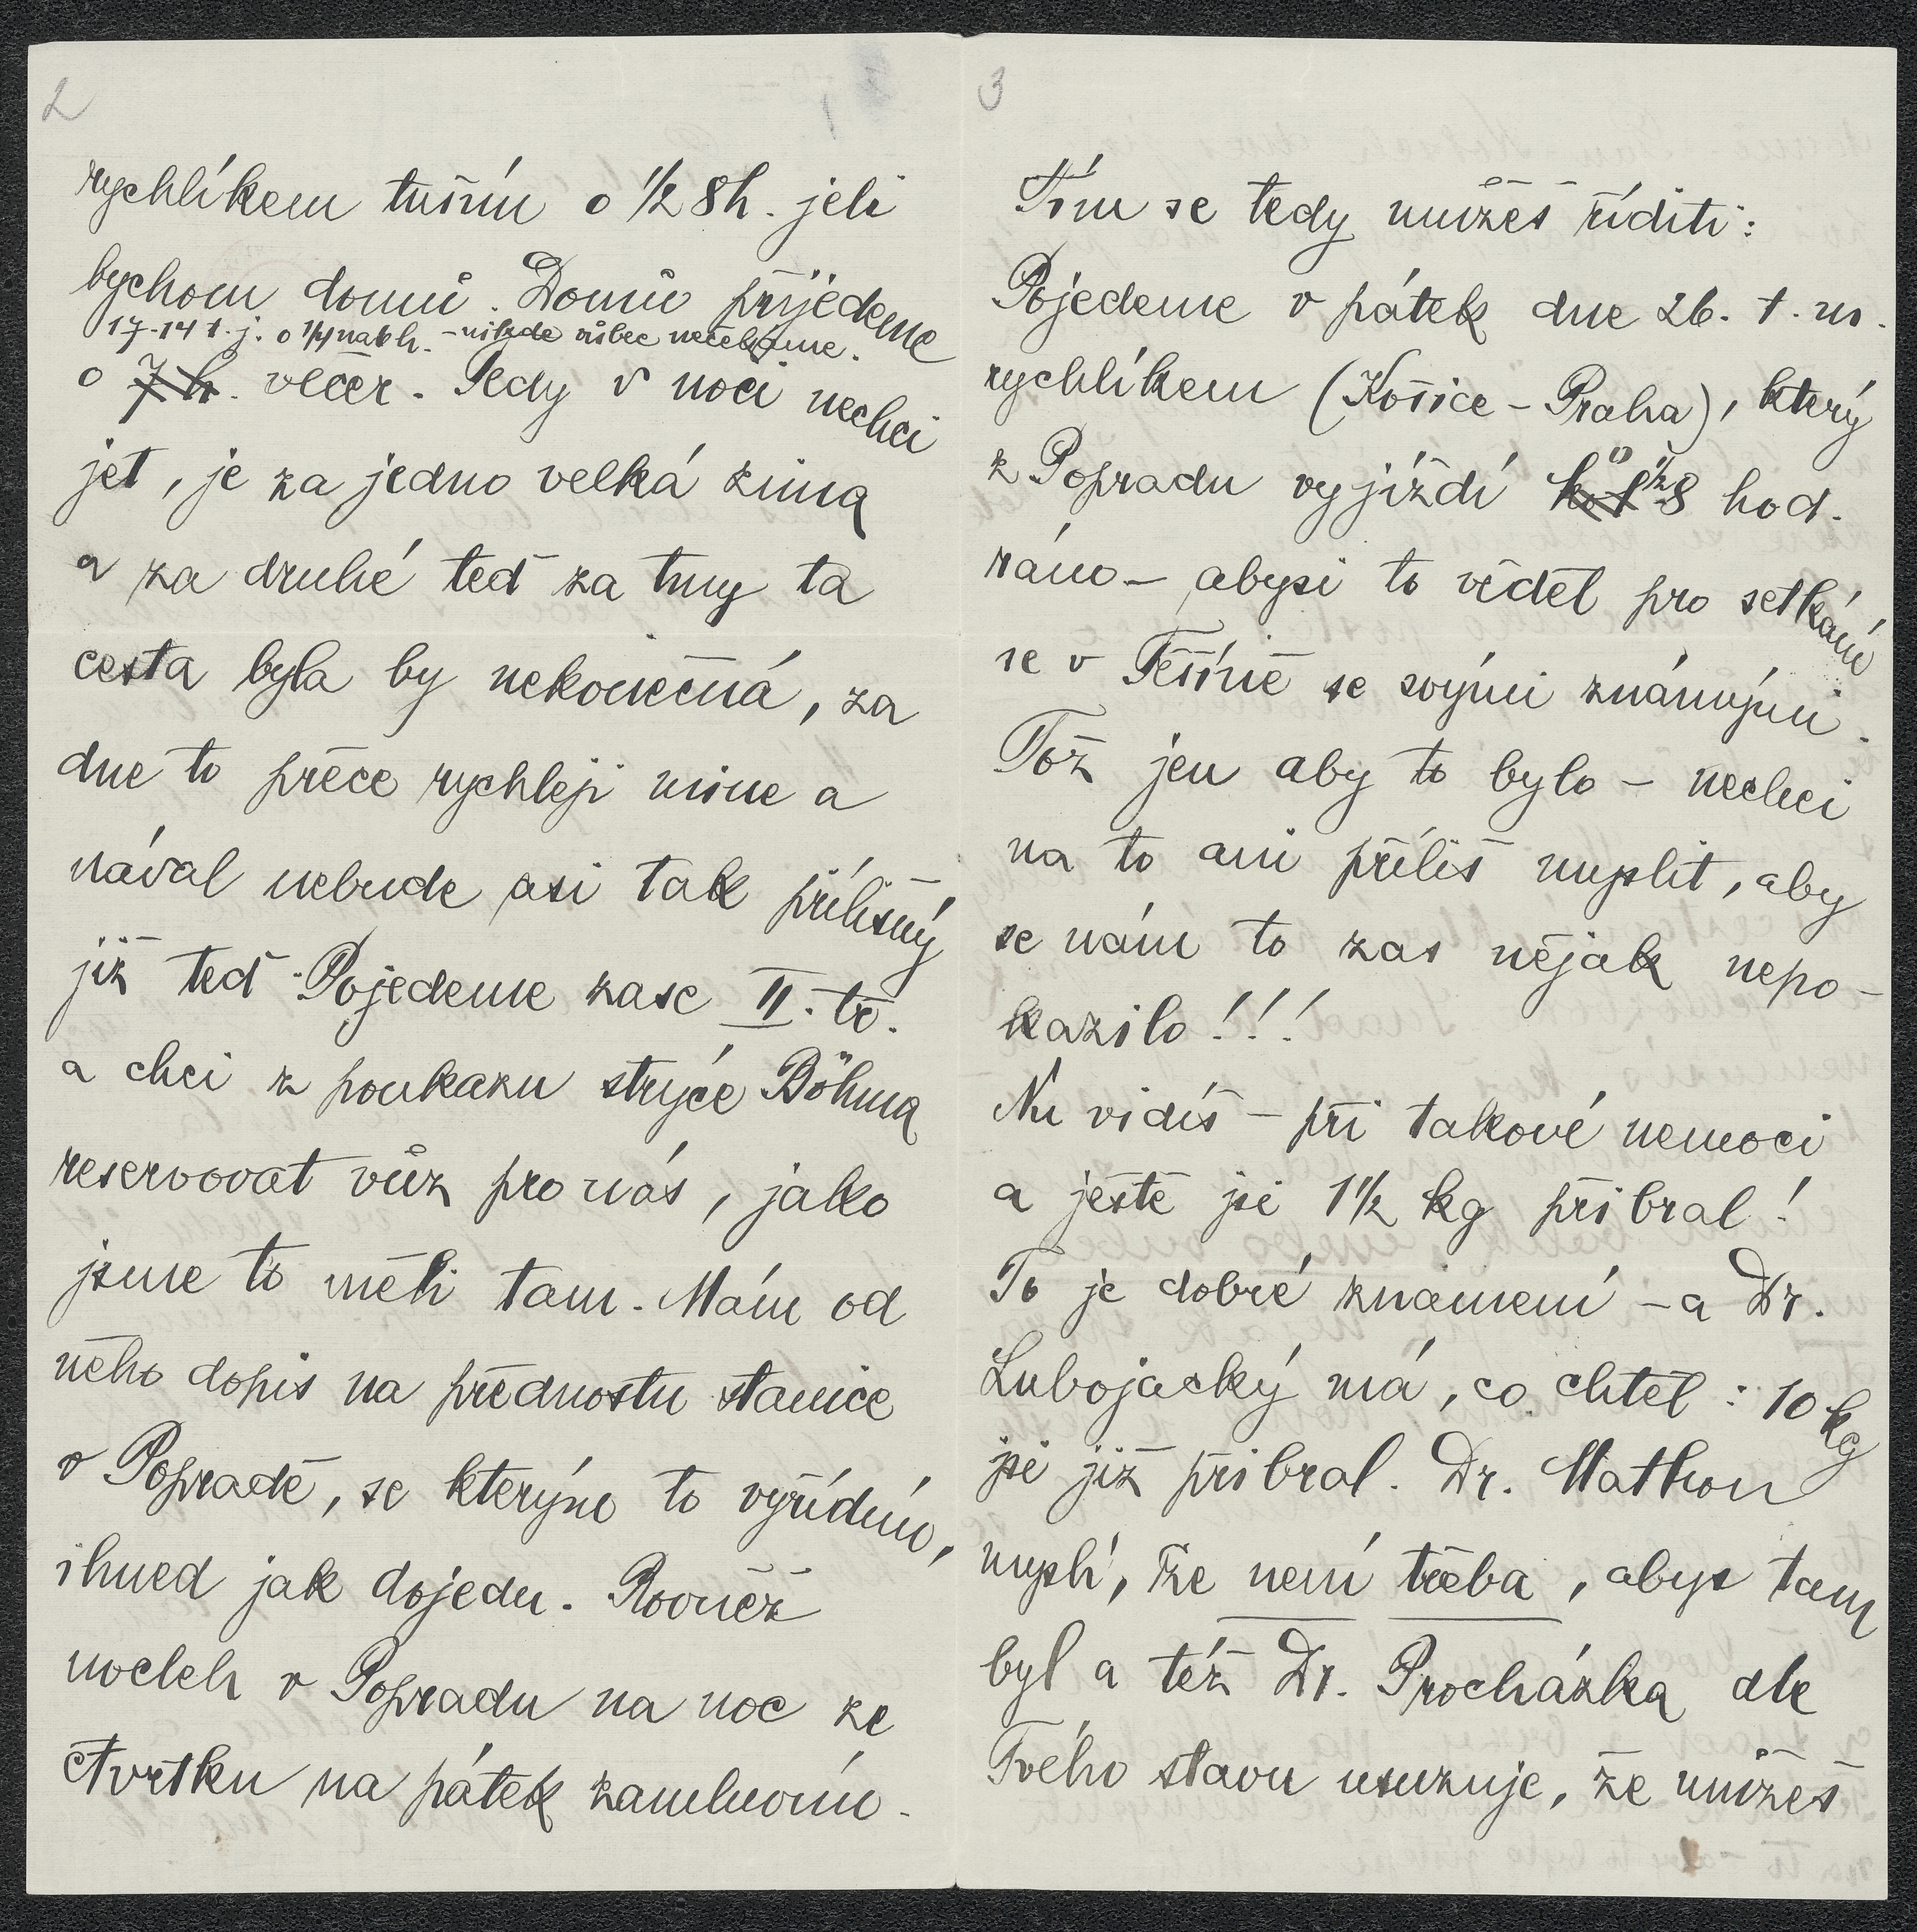 2
rychlíkem tuším o 1/2 8h. jeli
bychom domů. Domů přijedeme
17-14 t. j. o 1/4 na 6 h. - nikde vůbec nečekáme.
o 7 h. večer. Tedy v noci nechci
jet, je za jedno velká zima
a za druhé teď za tmy ta
cesta byla by nekonečná, za
dne to přece rychleji mine a
nával nebude asi tak přílišný
již teď. Pojedeme zase II. tř.
a chci z poukazu strýce Böhma
reservovat vůz pro nás, jako
jsme to měli tam. Mám od
něho dopis na přednostu stanice
v Popradě, se kterým to vyřídím,
ihned jak dojedu. Rovněž
nocleh v Popradu na noc ze
čtvrtku na pátek zamluvím.
3
Tím se tedy můžeš říditi:
Pojedeme v pátek dne 26. t. m.
rychlíkem (Košice - Praha), který
z Popradu vyjíždí o 1/2 8 hod.
ráno - abysi to věděl pro setkání
se v Těšíně se svými známými.
Tož jen aby to bylo - nechci
na to ani příliš myslit, aby
se nám to zas nějak nepo-
kazilo!!!
Nu vidíš - při takové nemoci
a ještě jsi 1 1/2 kg přibral!
To je dobré znamení - a Dr.
Lubojacký má, co chtěl: 10 kg
jsi již přibral. Dr. Mathon
myslí, že není třeba, abys tam
byl a též Dr. Procházka dle
Tvého stavu usuzuje, že můžeš